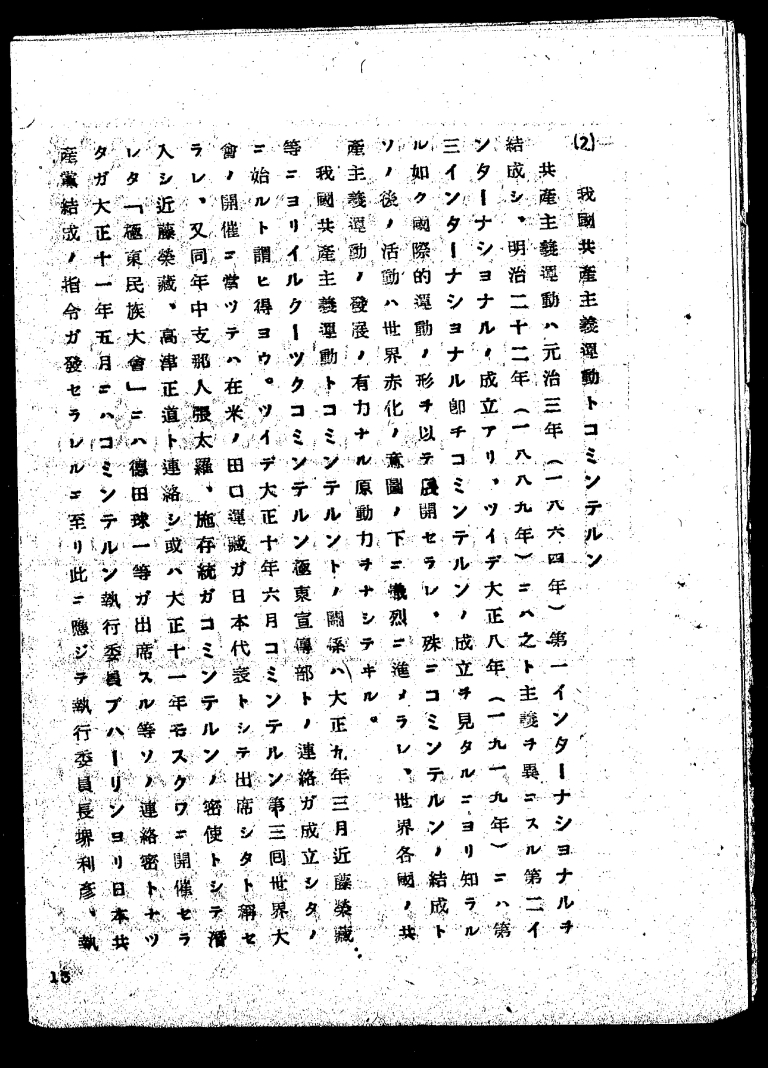 (2) 我國共產主義運動トコミンテルン
共產主義運動ハ元治三年(一八六四年)第一インターナショナルヲ
結成シ、明治二十二年(一八八九年)ニハ之ト主義ヲ異ニスル第二イ
ンターナショナルノ成立アリ、ツイデ大正八年(一九一九年)ニハ第
三インターナショナル卽チコミンテルンノ成立ヲ見タルニヨリ知ラル
ル如ク國際的運動ノ形ヲ以テ展開セラレ、殊ニコミンテルンノ結成ト
ソノ後ノ活動ハ世界赤化ノ意圖ノ下ニ熾烈ニ進メラレ、世界各國ノ共
產主義運動ノ發展ノ有力ナル原動力ヲナシテヰル。
我國共產主義運動トコミンテルントノ關係ハ大正九年三月近藤榮藏
等ニヨリイルクーツクコミンテルン極東宣傳部トノ連絡ガ成立シタノ
ニ始ルト謂ヒ得ヨウ。ツイデ大正十年六月コミンテルン第三回世界大
會ノ開催ニ當ツテハ在米ノ田口運藏ガ日本代表トシテ出席シタト稱セ
ラレ、又同年中支那人張太羅、施存統ガコミンテルンノ密使トシテ潛
入シ近藤榮藏、高津正道ト連絡シ或ハ大正十一年モスクワニ開催セラ
レタ「極東民族大會」ニハ德田球一等ガ出席スル等ソノ連絡密トナツ
タガ大正十一年五月ニハコミンテルン執行委員ブハーリンヨリ日本共
產黨結成ノ指令ガ發セラレルニ至リ此ニ應ジテ執行委員長堺利彥、執
13